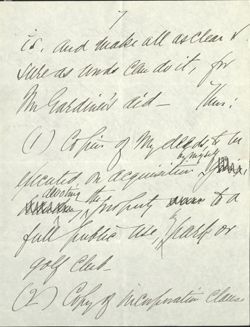 7
is, and make all as clear &
sure as words can do it, for
Mr Gardiner's aid — Thus:
(1) Copies of My deeds, to be
executed on acquisition by myself
devoting the property to a
full public use, park or
golf club —
(2) Copy of incorporation clause